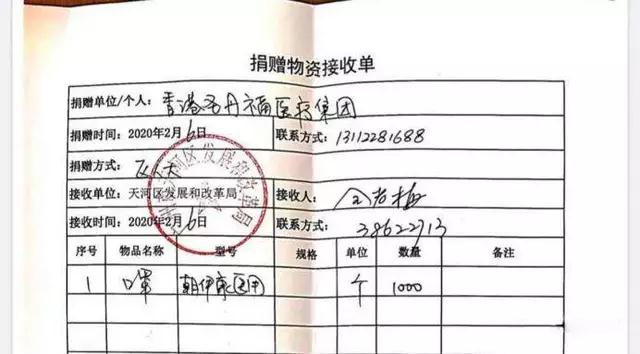 捐赠物资接收单
捐赠单位/个人：香港圣丹福医疗集团
捐赠时间：2020年2月6日 联系方式：13112281688
捐赠方式：
接收单位：天河区发展和改革局 接收人
接收时间：2020年2月6日 联系方式：38622713
序号 物品名称 型号 规格 单位 数量 备注
1 口罩 朝伊康医用 个 1000
天河区发展和改革局